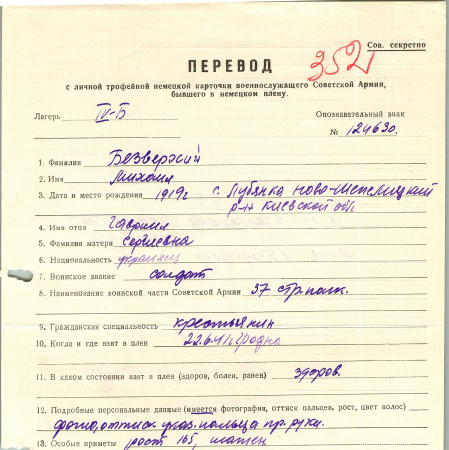 352
Сов. секретно
ПЕРЕВОД
с личной трофейной немецкой карточки военнослужащего Советской Армии,
бывшего в немецком плену.
Лагерь IV-Б Опознавательный знак
№ 124630.
1. Фамилия Безверхий
2. Имя Михаил
3. Дата и место рождения 1919г с. Лубянка Ново-Шепелицкий
р-н Киевской обл
4. Имя отца Гавриил
5. Фамилия матери Сергиевна
6. Национальность украинец
7. Воинское звание солдат
8. Наименование воинской части Советской Армии 37 стр.полк.
9. Гражданская специальность крестьянин
10. Когда и где взят в плен 22.6.41г Гродно
11. В каком состоянии взят в плен (здоров, болен, ранен) здоров.
12. Подробные персональные данные (имеется фотография, оттиск пальцев, рост, цвет волос)
фото, оттиск указ. пальца пр. руки.
13. Особые приметы рост 165,